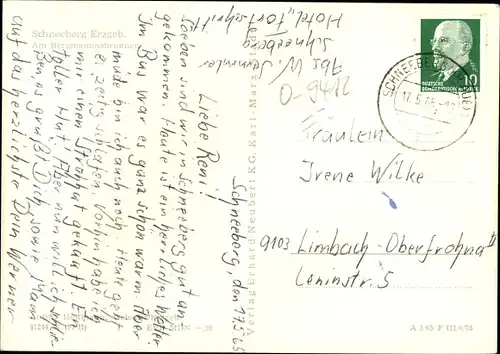 Schneeberg Erzgeb.
Am Bergmannsbrunnen
Schneeberg, den 17.5.65
Liebe Reni!
Soeben sind wir in Schneeberg gut an-
gekommen. Heute ist ein herrliches Wetter.
Im Bus war es ganz schön warm. Aber
müde bin ich auch noch. Heute geht
es zeitig schlafen. Vorhin habe ich
mir einen Strohhut gekauft. Ein
toller Hut. Aber nun will ich
es grüßt Dich, sowie Mama
auf das herzlichste Dein Werner
Abs. W. Semmler
Schneeberg
Hotel "Fortschritt"
O-9412
Verlag Erhard Neubert KG, Karl-Marx-
EVP MDN -,20
A 2/65 F III/6/75
SCHNEEBERG
17.5.65
10
DEUTSCHE
DEMOKRATISCHE REPUBLIK
Fräulein
Irene Wilke
9103 Limbach-Oberfrohna II
Leninstr. 5